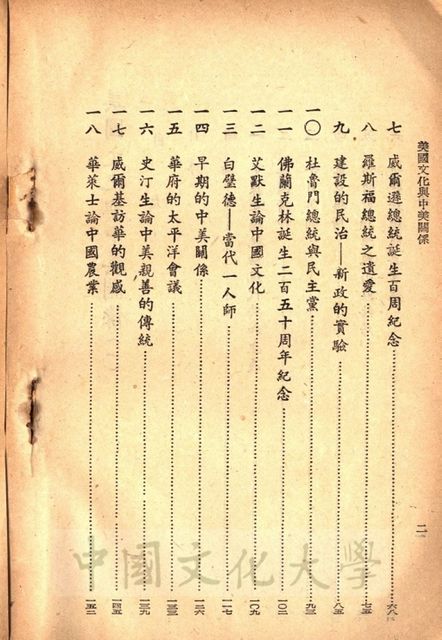 美國文化與中美關係
七 威爾遜總統誕生百周紀念……六八
八 羅斯福總統之遺愛……七五
九 建設的民治——新政的實驗……八五
一〇 杜魯門總統與民主黨……九三
一一 佛蘭克林誕生二百五十周年紀念……一〇二
一二 艾默生論中國文化……一〇九
一三 白璧德——當代一人師……一一七
一四 早期的中美關係……一二六
一五 華府的太平洋會議……一三三
一六 史汀生論中美親善的傳統……一三九
一七 威爾基訪華的觀感……一四五
一八 華萊士論中國農業……一五二
二
中國文化大學